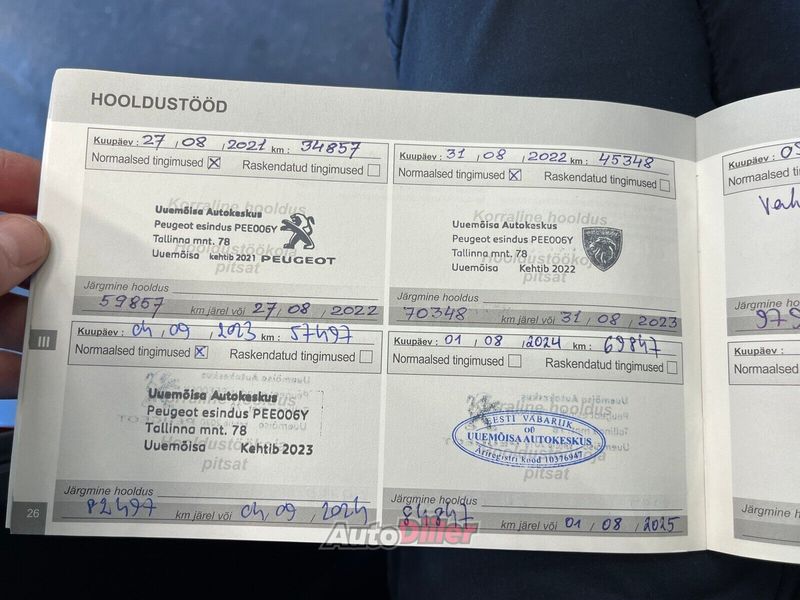 HOOLDUSTÖÖD
Kuupäev : 27 , 08 , 2021 km : 34857
Normaalsed tingimused X Raskendatud tingimused
Korraline hooldus
Uuemõisa Autokeskus
Peugeot esindus PEE006Y
Tallinna mnt. 78
Uuemõisa kehtib 2021 PEUGEOT
Hooldustöökoja
pitsat
Järgmine hooldus
59857 km järel või 27 , 08 , 2022
Kuupäev : 31 , 08 , 2022 km : 45348
Normaalsed tingimused X Raskendatud tingimused
Korraline hooldus
Uuemõisa Autokeskus
Peugeot esindus PEE006Y
Tallinna mnt. 78
Uuemõisa Kehtib 2022
Hooldustöökoja
pitsat
Järgmine hooldus
70348 km järel või 31 , 08 , 2023
III
Kuupäev : 04 , 09 , 2023 km : 57497
Normaalsed tingimused X Raskendatud tingimused
Korraline hooldus
Uuemõisa Autokeskus
Peugeot esindus PEE006Y
Tallinna mnt. 78
Uuemõisa Kehtib 2023
Hooldustöökoja
pitsat
Järgmine hooldus
82497 km järel või 04 , 09 , 2024
Kuupäev : 01 , 08 , 2024 km : 69847
Normaalsed tingimused Raskendatud tingimused
Korraline hooldus
EESTI VABARIIK
OÜ
UUEMÕISA AUTOKESKUS
Äriregistri kood 10376947
Hooldustöökoja
pitsat
Järgmine hooldus
84847 km järel või 01 , 08 , 2025
26
AutoDiiler
Kuupäev :
Normaalsed
Järgmine hooldus
Kuupäev :
Normaalsed
Järgmine hooldus